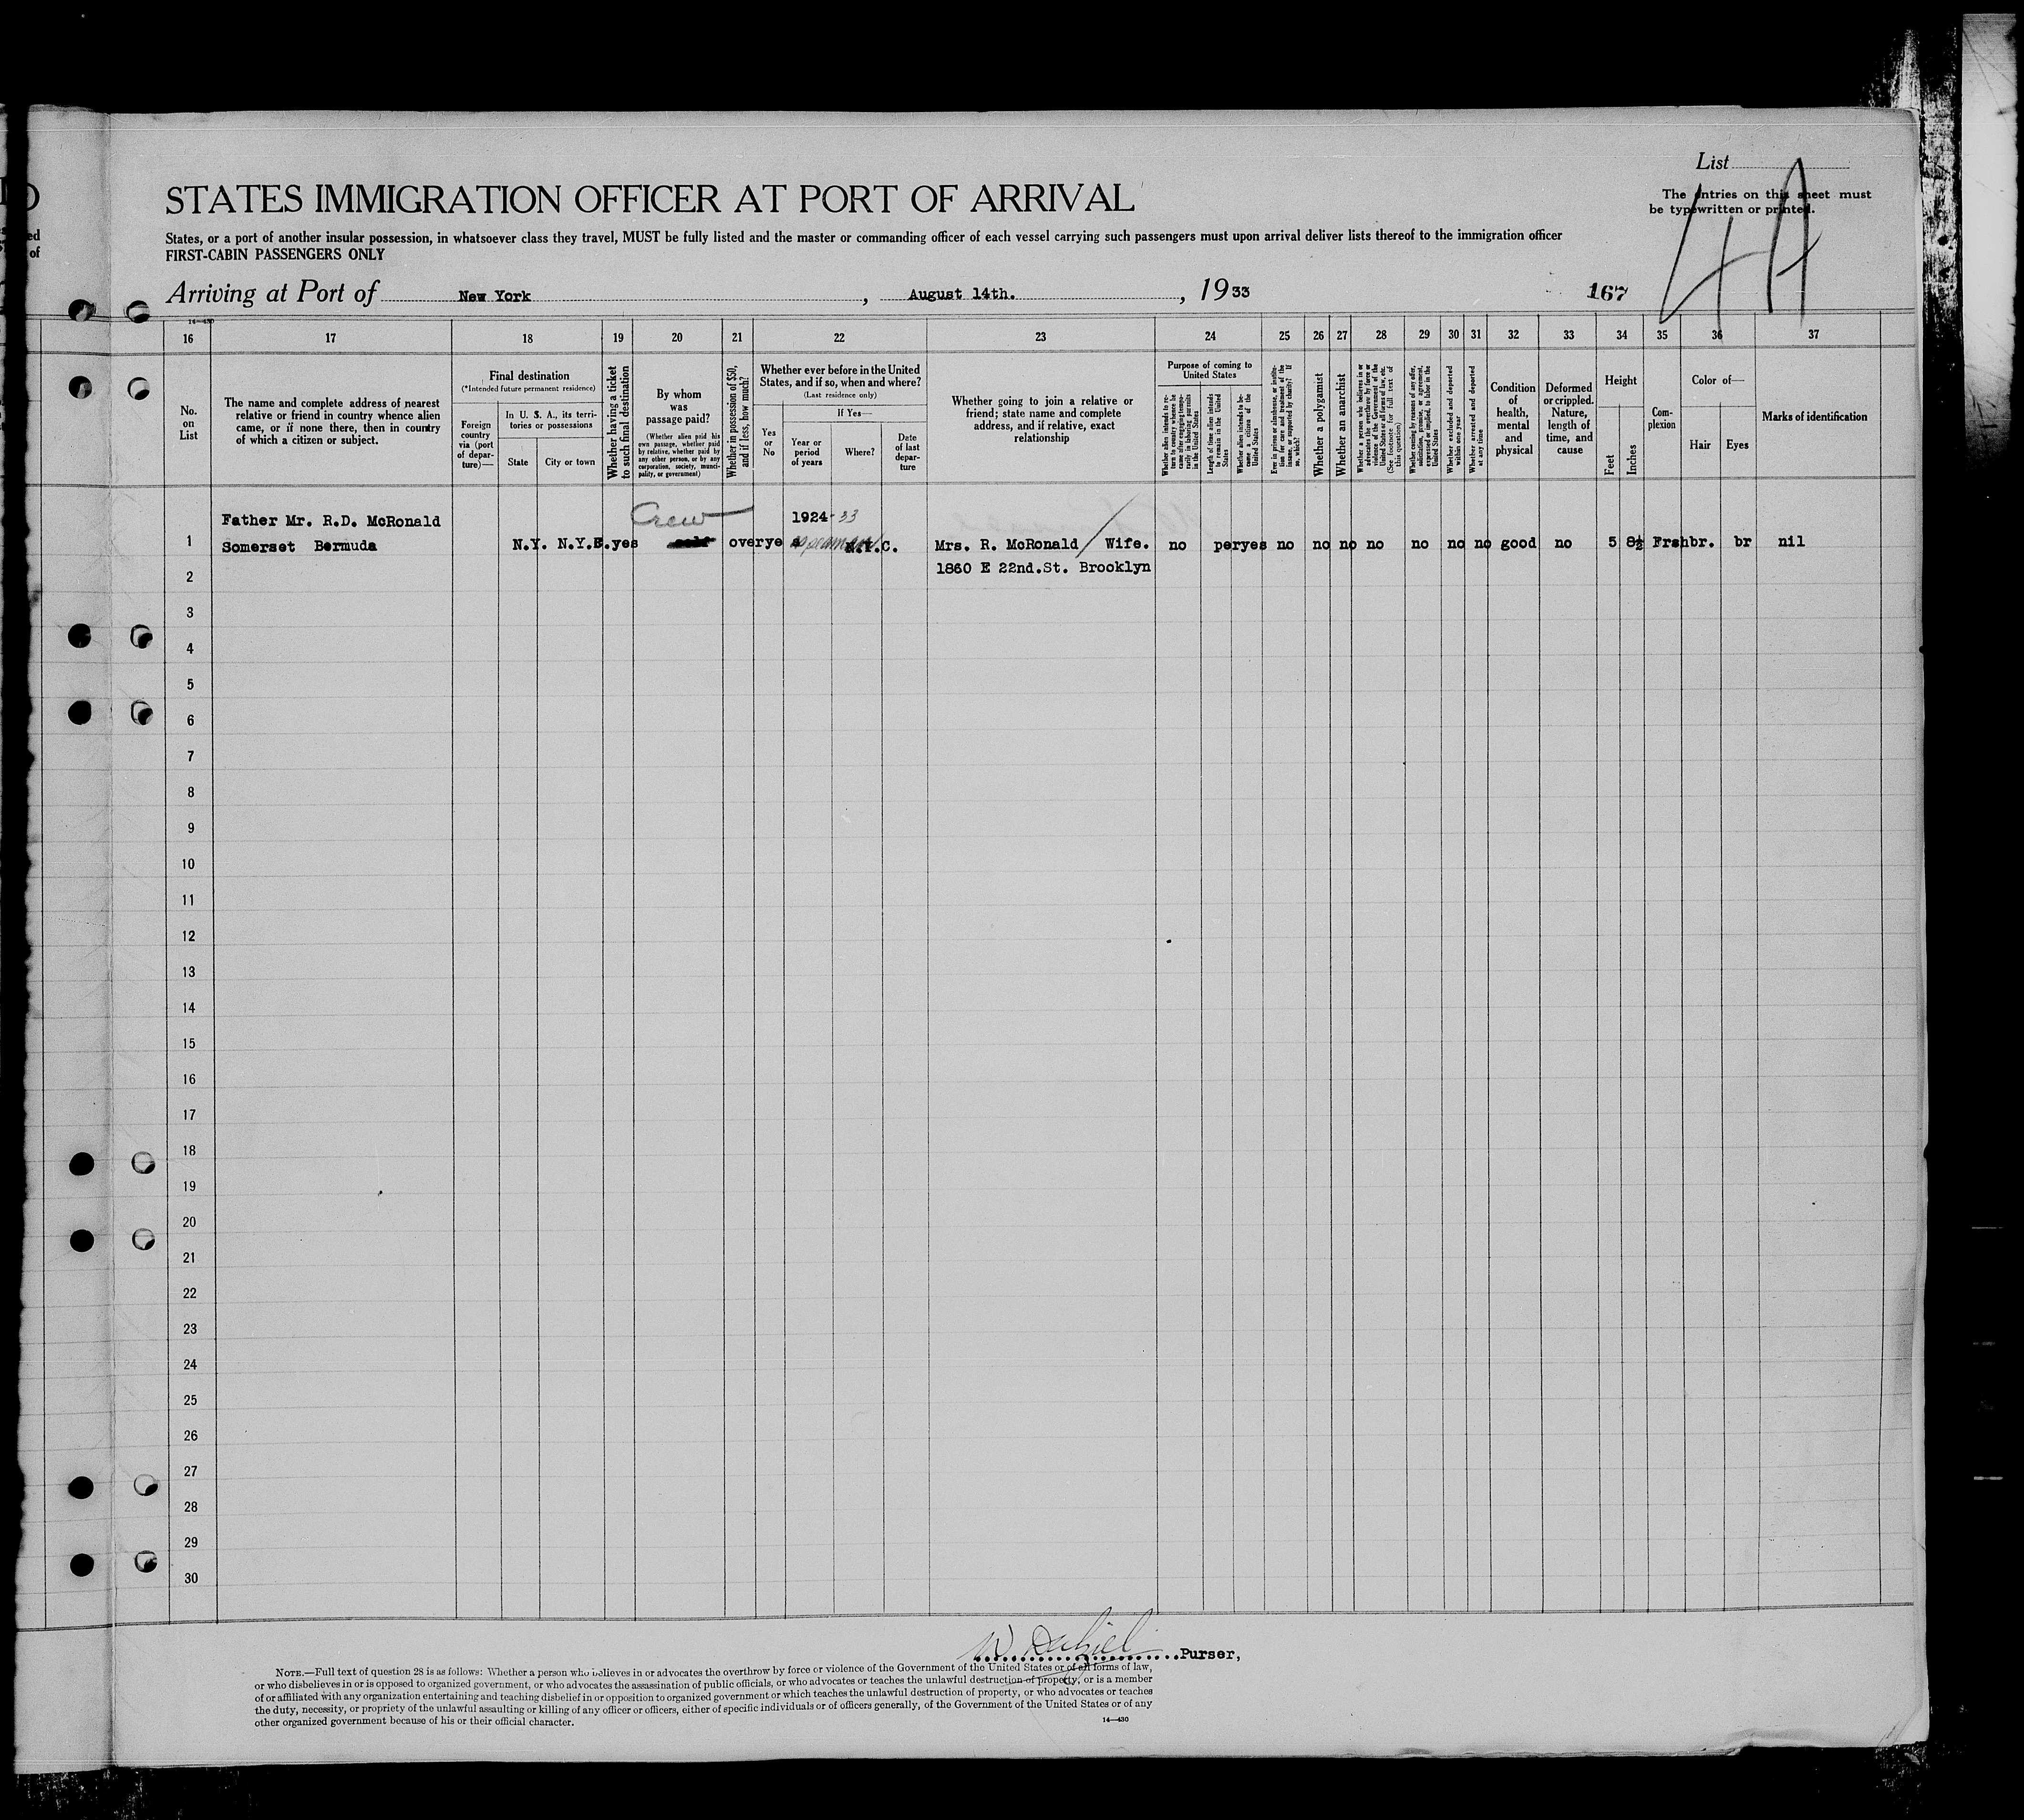 List
The entries on this sheet must
be typewritten or printed.
4A
STATES IMMIGRATION OFFICER AT PORT OF ARRIVAL
States, or a port of another insular possession, in whatsoever class they travel, MUST be fully listed and the master or commanding officer of each vessel carrying such passengers must upon arrival deliver lists thereof to the immigration officer
FIRST-CABIN PASSENGERS ONLY
ed
of
Arriving at Port of New York, August 14th., 1933
167
14—430
16 17 18 19 20 21 22 23 24 25 26 27 28 29 30 31 32 33 34 35 36 37
No.
on
List
The name and complete address of nearest
relative or friend in country whence alien
came, or if none there, then in country
of which a citizen or subject.
Final destination
(*Intended future permanent residence)
Foreign
country
via (port
of depar-
ture)—
In U. S. A., its terri-
tories or possessions
State
City or town
Whether having a ticket
to such final destination
By whom
was
passage paid?
(Whether alien paid his
own passage, whether paid
by relative, whether paid by
any other person, or by any
corporation, society, munici-
pality, or government)
Whether in possession of $50,
and if less, how much?
Whether ever before in the United
States, and if so, when and where?
(Last residence only)
Yes
or
No
If Yes—
Year or
period
of years
Where?
Date
of last
depar-
ture
Whether going to join a relative or
friend; state name and complete
address, and if relative, exact
relationship
Purpose of coming to
United States
Whether alien intends to re-
turn to country whence he
came after engaging tempo-
rarily in laboring pursuits
in the United States
Length of time alien intends
to remain in the United
States
Whether alien intends to be-
come a citizen of the
United States
Ever in prison or almshouse, or institu-
tion for care and treatment of the
insane, or supported by charity? If
so, which?
Whether a polygamist
Whether an anarchist
Whether a person who believes in or
advocates the overthrow by force or
violence of the Government of the
United States or all forms of law, etc.
(See footnote for full text of
this question)
Whether coming by reasons of any offer,
solicitation, promise, or agreement,
expressed or implied, to labor in the
United States
Whether excluded and deported
within one year
Whether arrested and deported
at any time
Condition
of
health,
mental
and
physical
Deformed
or crippled.
Nature,
length of
time, and
cause
Height
Feet
Inches
Com-
plexion
Color of—
Hair
Eyes
Marks of identification
Father Mr. R.D. McRonald Crew 1924-33
1 Somerset Bermuda N.Y. N.Y. yes self over yes N.Y.C. Mrs. R. McRonald / Wife. no per yes no no no no no no no good no 5 8½ Frsh br. br nil
2 1860 E 22nd.St. Brooklyn
3
4
5
6
7
8
9
10
11
12
13
14
15
16
17
18
19
20
21
22
23
24
25
26
27
28
29
30
Purser,
NOTE.—Full text of question 28 is as follows: Whether a person who believes in or advocates the overthrow by force or violence of the Government of the United States or of all forms of law,
or who disbelieves in or is opposed to organized government, or who advocates the assassination of public officials, or who advocates or teaches the unlawful destruction of property, or is a member
of or affiliated with any organization entertaining and teaching disbelief in or opposition to organized government or which teaches the unlawful destruction of property, or who advocates or teaches
the duty, necessity, or propriety of the unlawful assaulting or killing of any officer or officers, either of specific individuals or of officers generally, of the Government of the United States or of any
other organized government because of his or their official character.
14—430